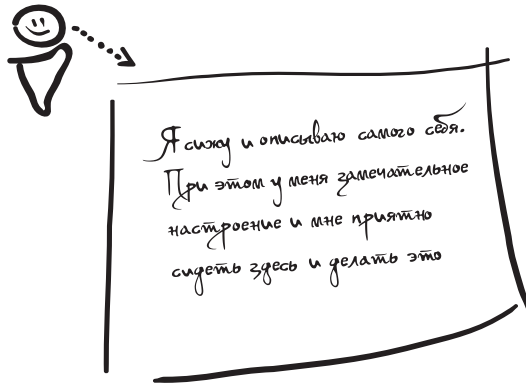 Я сижу и описываю самого себя.
При этом у меня замечательное
настроение и мне приятно
сидеть здесь и делать это